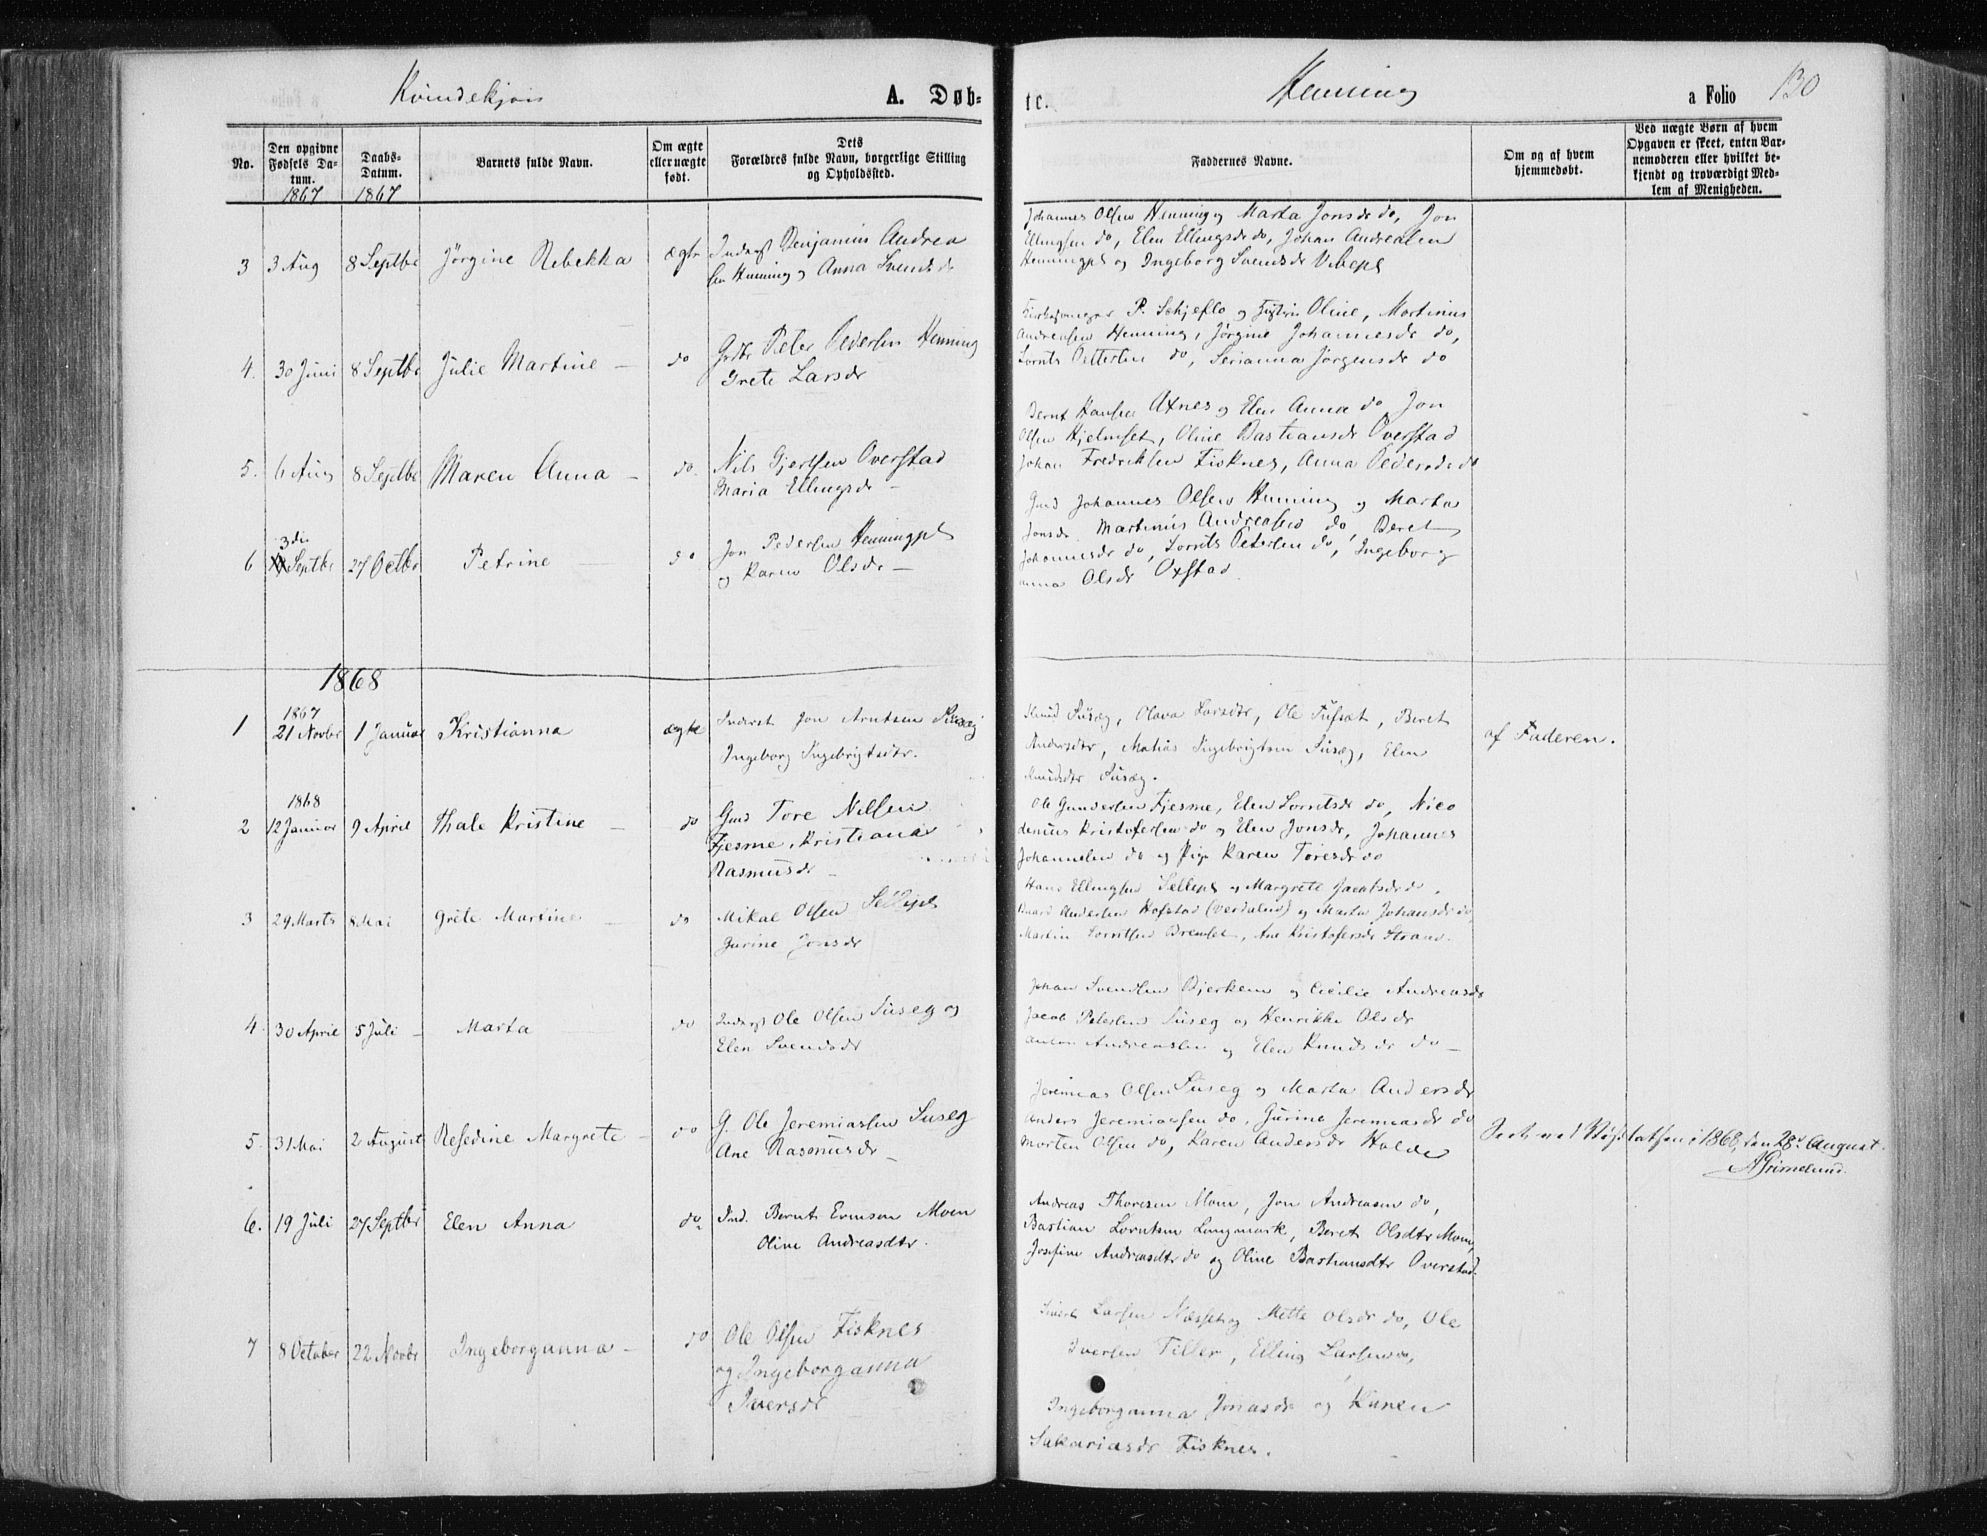 Kvindekjøn
A. Døb-
te.
Henning
a Folio 130
No.
Den opgivne
Fødsels Da-
tum.
1867
Daabs-
Datum.
1867
Barnets fulde Navn.
Om ægte
eller uægte
født.
Dets
Forældres fulde Navn, borgerlige Stilling
og Opholdssted.
Faddernes Navne.
Om og af hvem
hjemmedøbt.
Ved uægte Børn af hvem
Opgaven er skeet, enten Bar-
nemoderen eller hvilket be-
kjendt og troværdigt Med-
lem af Menigheden.
3 3 Aug 8 Septbr Jørgine Rebekka ægte
Inderst Benjamin Andrea
sen Henning og Anna Svendsdr
Johannes Olsen Henning og Marta Jonsdr do, Jon
Ellingsen do, Elen Ellingsdr do, Johan Andreasen
Henningpl og Ingeborg Svendsdr
4. 30 Juni 8 Septbr Julie Martine — do
Peter Pedersen Henning
Grete Larsdr
Kirkesanger P. og Oline, Martinus
Andreasen Henning, Jørgine Johannesdr do,
Lornts Pettersen do, Serianna Jørgensdr do
5. 6 Aug 8 Septbr Maren Anna — do.
Nils Gjertsen Overstad
Maria Ellingsdr —
Bernt Hansen Axnes og Elen Anna do Jon
Olsen Hjelmset, Oline Bastiansdr Overstad
Johan Fredriksen Fisknes, Anna Pedersdr do
6 3die Septbr 27 Octbr Petrine — do
Jon Pedersen Henningpl
og Karen Olsdr —
Gmd Johannes Olsen Henning og Marta
Jonsdr Martinus Andreasen do, Beret
Johannesdr do, Lornts Petersen do, Ingeborg
anna Olsdr Oxstad
1868
1 1867 21 Novbr 1 Januar Kristianna ægte
Inderst Jon Arntsen Suseg
Ingeborg Ingebrigtsdtr.
Knud Suseg, Olava Larsdtr, Ole Tufsat, Beret
Andersdtr, Matias Ingebrigtsen Suseg, Elen
Knudsdtr Suseg.
af Faderen.
2 1868 12 Januar 9 April Thale Kristine — do
Gmd Tore Nilsen
Fjesme, Kristiana
Rasmusdr —
Ole Gundersen Fjesme, Elen Lorntsdr do, Nico
demus Kristofersen do og Elen Jonsdr, Johannes
Johannesen do og Pige Karen Toresdr do
3 29 Marts 8 Mai Grete Martine — do
Mikal Olsen
Gurine Jonsdr
Hans Ellingsen og Margrete Jacobsdr do.
Baard Andersen Hofstad (Verdalen) og Marta Johansdr do
Martin Lorntsen Bremset, Ane Kristofersdr Strand.
4. 30 April 5 Juli — Marta do
Inderst Ole Olsen Suseg og
Elen Svendsdr
Johan Svendsen Bjerkem og Cecilie Andreasdr
Jacob Petersen Suseg og Henrikke Olsdr
Anton Andreassen og Elen Knudsdr do —
5. 31 Mai 2 August Resedine Margrete — do
G. Ole Jeremiassen Suseg
Ane Rasmusdr —
Jeremias Olsen Suseg og Marta Andersdr
Anders Jeremiassen do, Gurine Jeremiasdr do
Morten Olsen do, Karen Andersdr Halde
1868, den 28d August.
AGrimelund.
6. 19 Juli 27 Septbr Elen Anna do.
Ind. Bernt Evensen Moen
Oline Andreasdtr.
Andreas Thoresen Moen, Jon Andreasen do,
Bastian Lorntsen Langmark, Beret Olsdtr Moen,
Josefine Andreasdtr do og Oline Bastiansdtr Overstad.
7 8 October 22 Novbr Ingeborganna — do
Ole Olsen Fisknes
og Ingeborganna
Iversdr
Sivert Larsen Næsset og Mette Olsdr do, Ole
Iversen Tiller, Elling Larsen do,
Ingeborganna Jonasdr og Karen
Sakariasdr Fisknes.